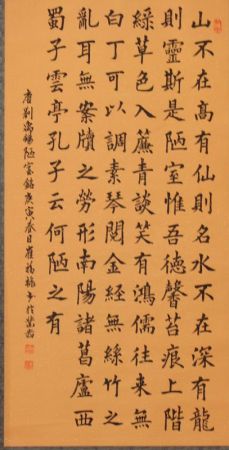 山不在高有仙則名水不在深有龍
則靈斯是陋室惟吾德馨苔痕上階
綠草色入簾青談笑有鴻儒往來無
白丁可以調素琴閱金經無絲竹之
亂耳無案牘之勞形南陽諸葛廬西
蜀子雲亭孔子云何陋之有
唐劉禹錫陋室銘庚寅春日崔福